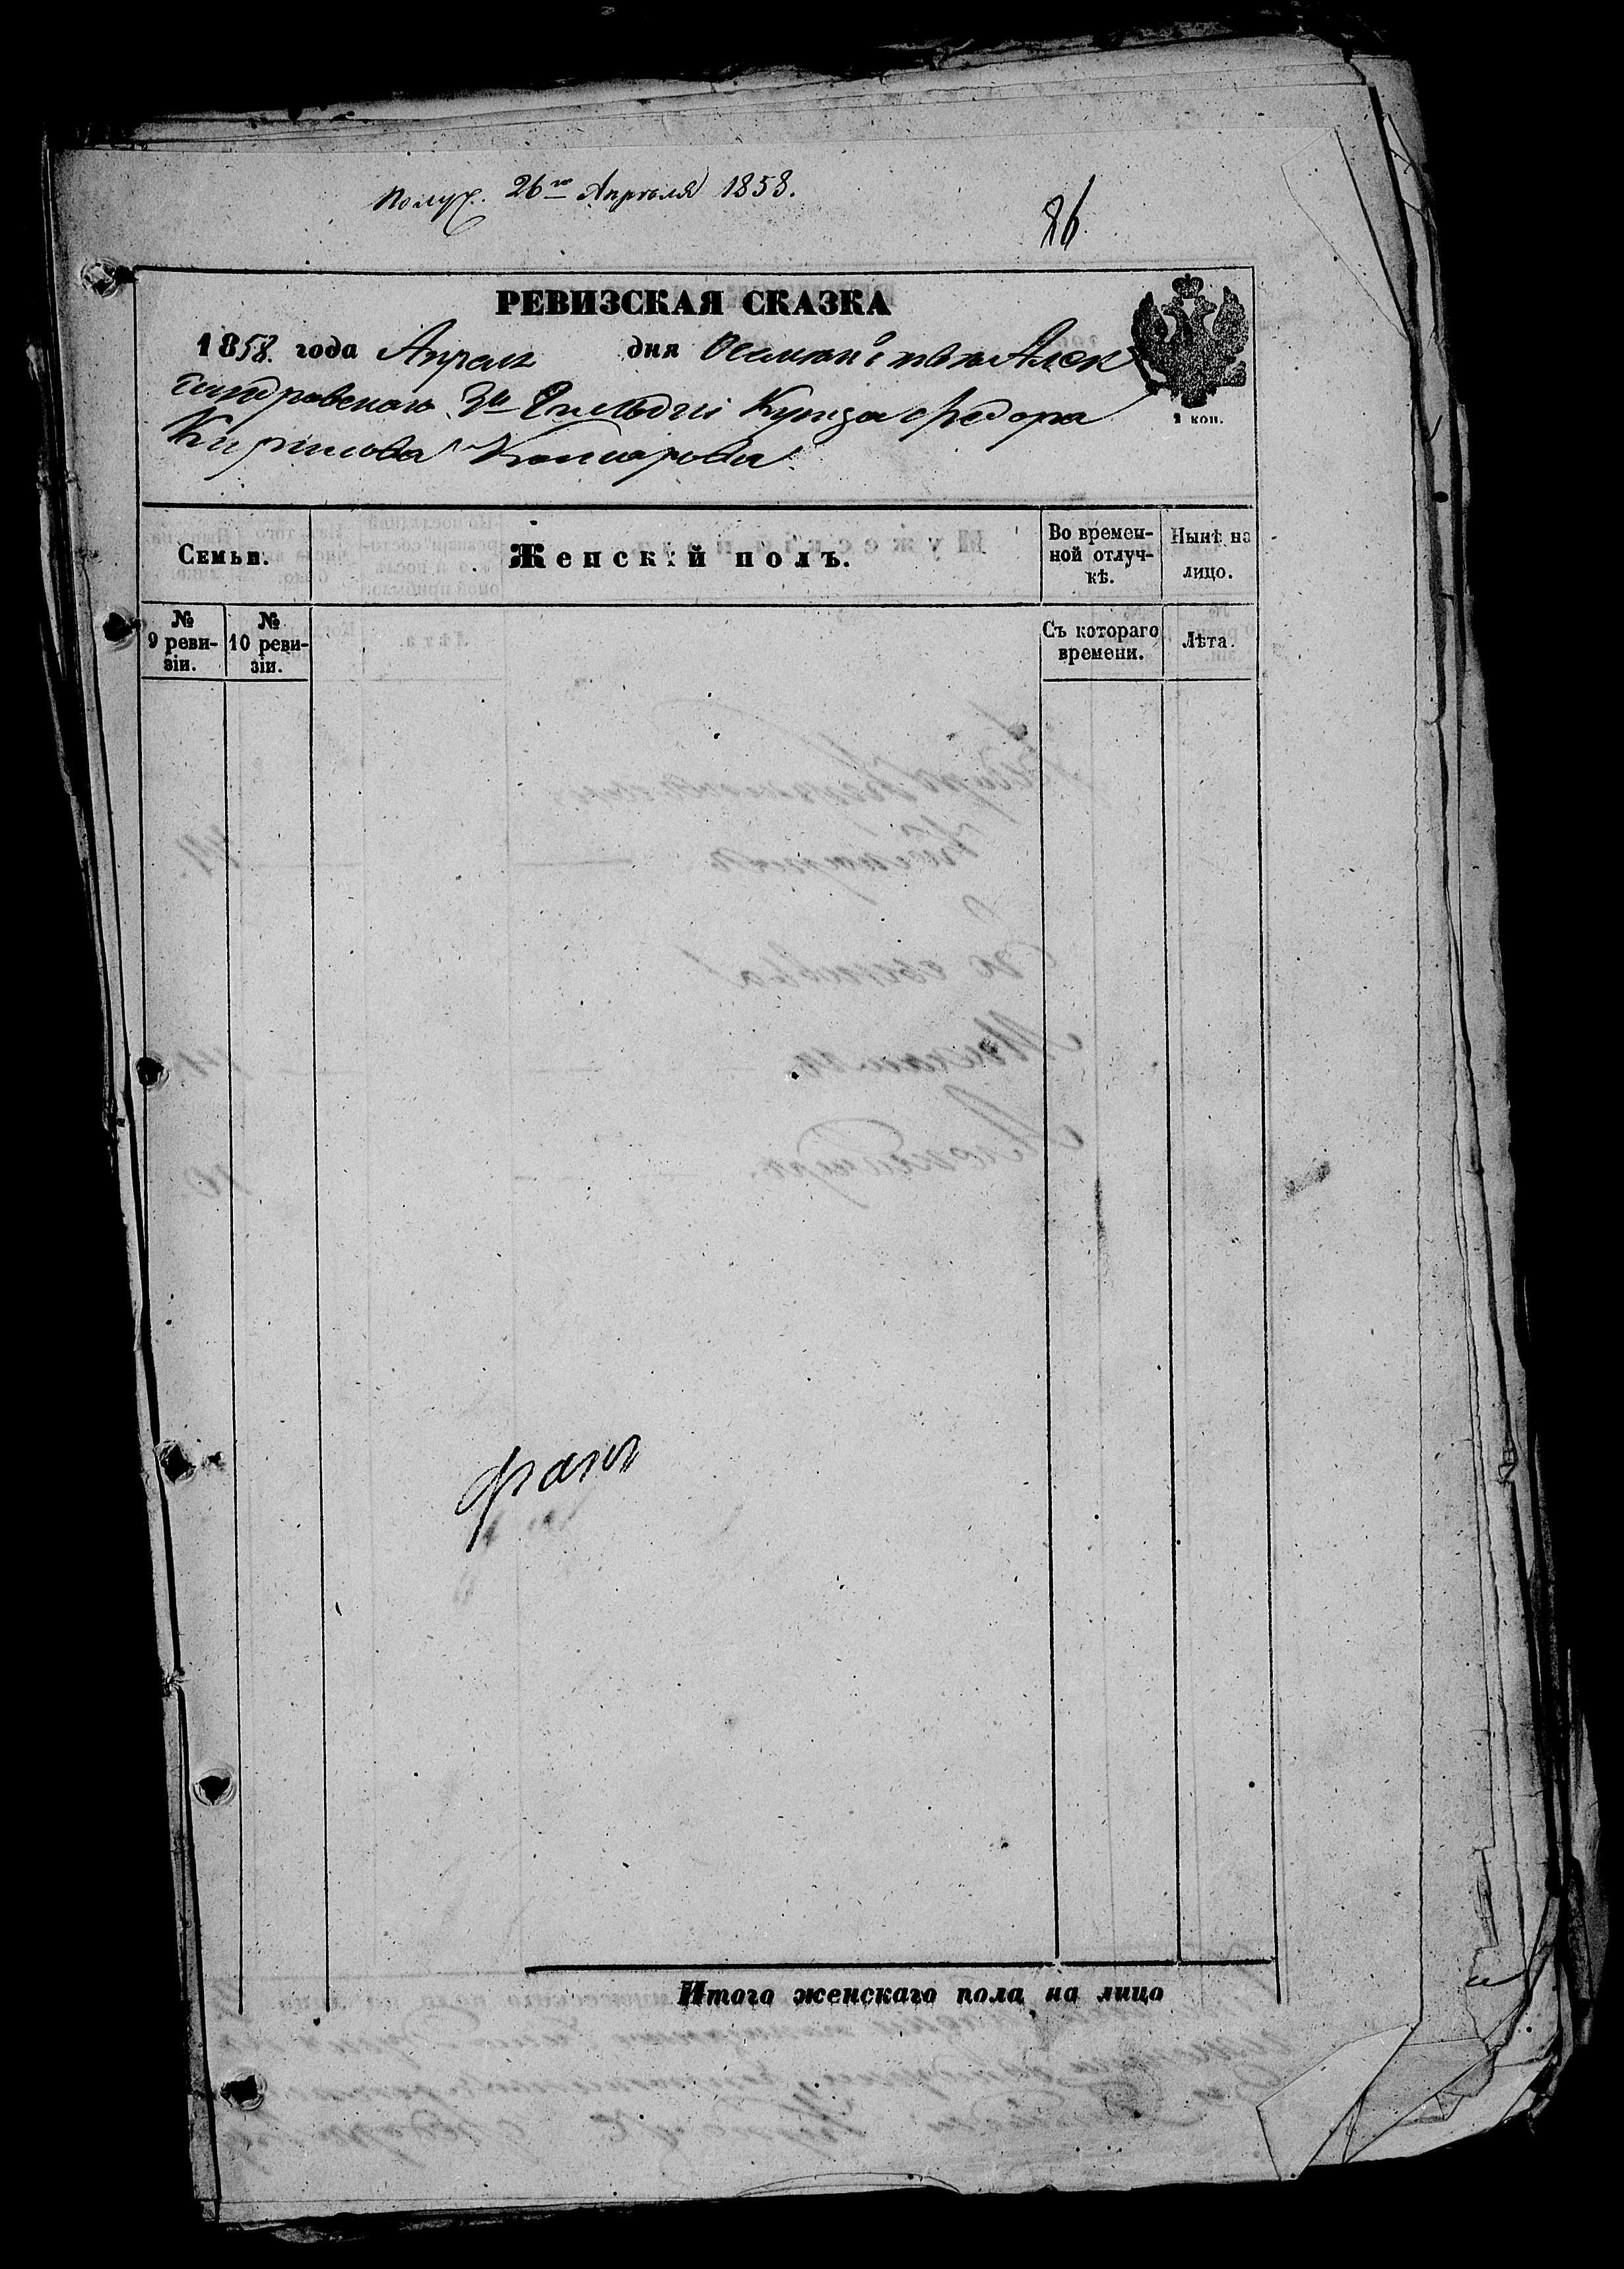 Получ. 26го Апрѣля 1858.
86.
РЕВИЗСКАЯ СКАЗКА
1858. года Апреля дня Алек
сандровскаго 3й Гильдіи Купца Федора
Кирилова
1 коп.
Семьи.
Женскій полъ.
Во времен-
ной отлуч-
кѣ.
Нынѣ на
лицо.
№
9 реви-
зіи.
№
10 реви-
зіи.
Съ котораго
времени.
Лѣта.
Итого женскаго пола на лицо